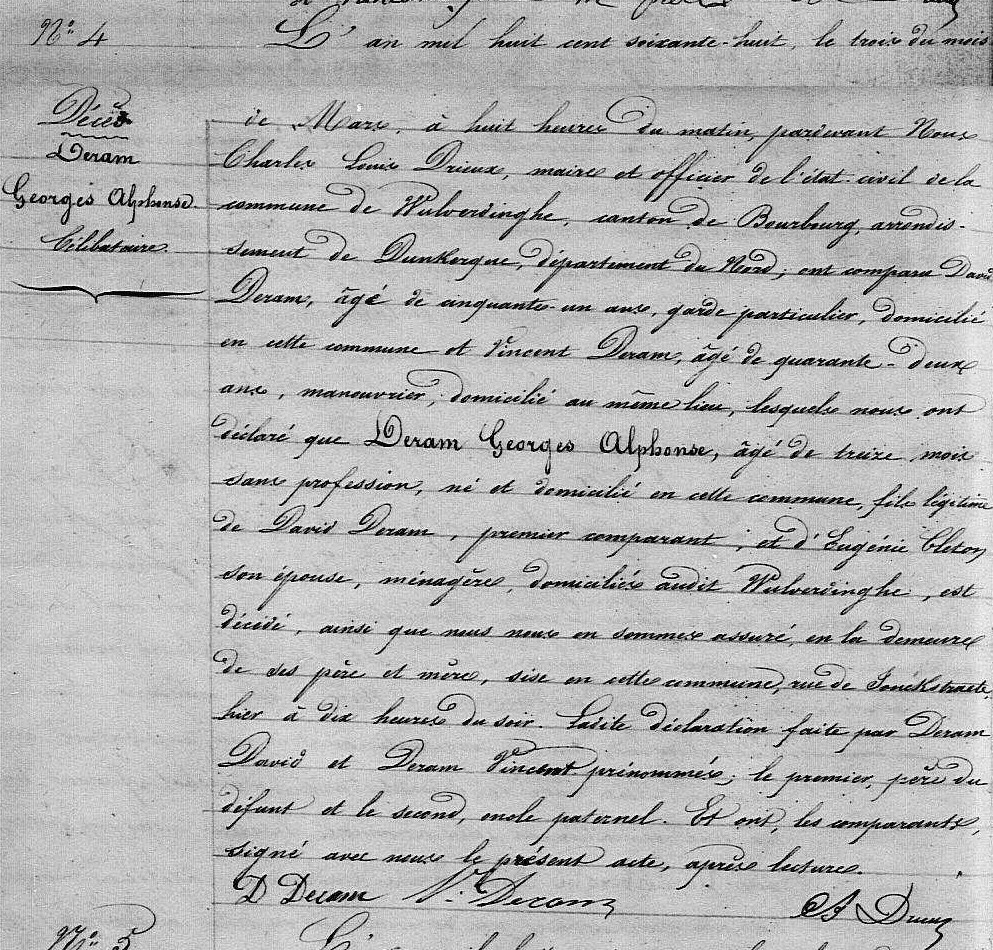 N.o 4
L'an mil huit cent soixante-huit, le trois du mois
Décès
Deram
Georges Alphonse
Célibataire
de Mars, à huit heures du matin, pardevant Nous
Charles Louis Drieux, maire et officier de l'état-civil de la
commune de Wulverdinghe, canton de Bourbourg, arrondis-
sement de Dunkerque, département du Nord; ont comparu David
Deram, âgé de cinquante-un ans, garde particulier, domicilié
en cette commune et Vincent Deram, âgé de quarante-deux
ans, manouvrier, domicilié au même lieu, lesquels nous ont
déclaré que Deram Georges Alphonse, âgé de treize mois
sans profession, né et domicilié en cette commune, fils légitime
de David Deram, premier comparant, et d'Eugénie Cleton
son épouse, ménagère, domiciliés audit Wulverdinghe, est
décédé, ainsi que nous nous en sommes assuré, en la demeure
de ses père et mère, sise en cette commune, rue de
hier à dix heures du soir. Ladite déclaration faite par Deram
David et Deram Vincent prénommés; le premier, père du
défunt et le second, oncle paternel. Et ont, les comparants,
signé avec nous le présent acte, après lecture.
D Deram V. Deram Drieux
N.o 5